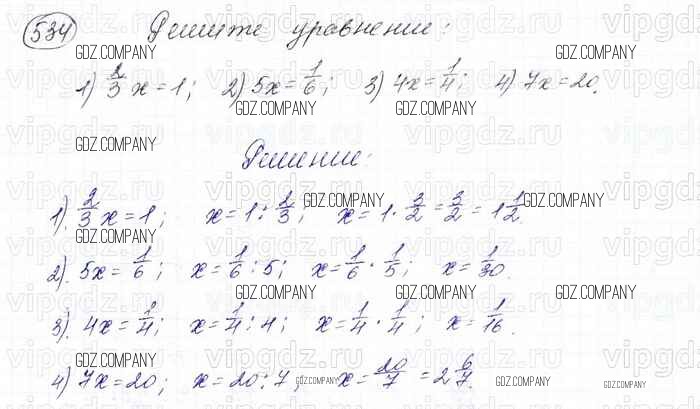 534 Решите уравнение:
1) 2/3 x = 1; 2) 5x = 1/6; 3) 4x = 1/4; 4) 7x = 20.
Решение:
1). 2/3 x = 1; x = 1 : 2/3; x = 1 · 3/2 = 3/2 = 1 1/2.
2). 5x = 1/6; x = 1/6 : 5; x = 1/6 · 1/5; x = 1/30.
3). 4x = 1/4; x = 1/4 : 4; x = 1/4 · 1/4; x = 1/16.
4) 7x = 20; x = 20 : 7; x = 20/7 = 2 6/7.
GDZ.COMPANY
vipgdz.ru